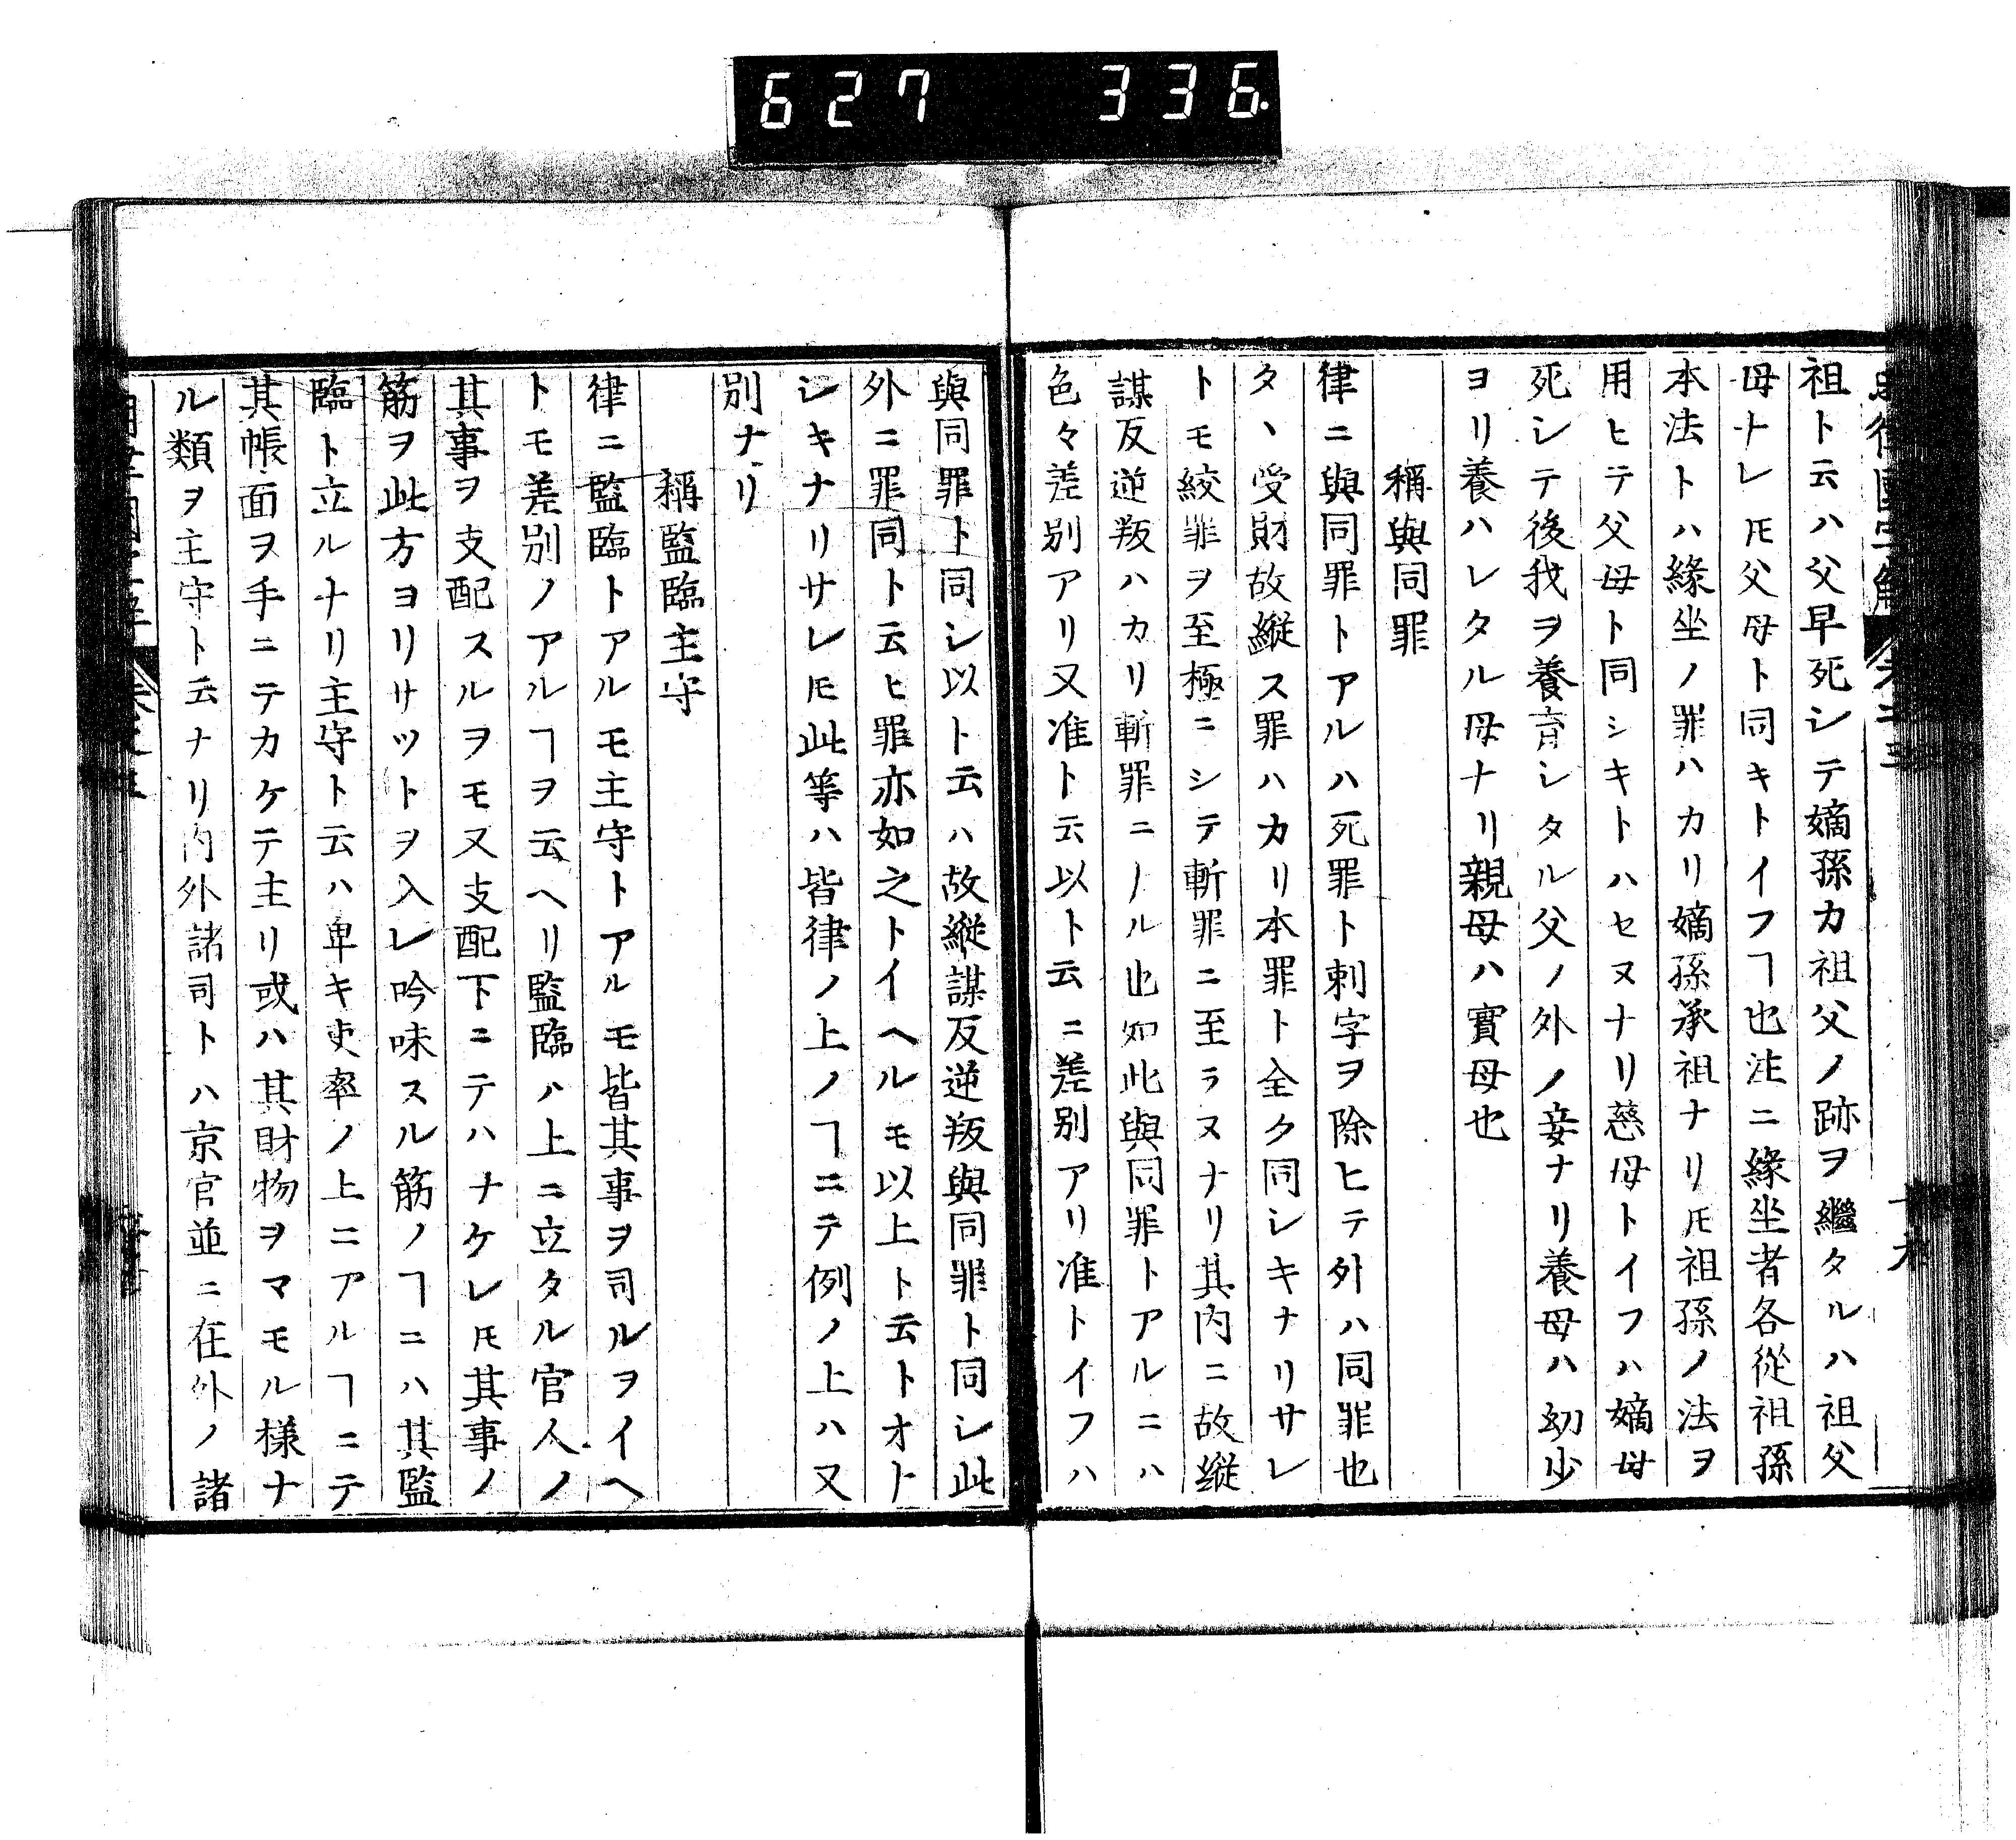 627 336
祖ト云ハ父早死シテ嫡孫カ祖父ノ跡ヲ繼タルハ祖父
母ナレ𪜈父母ト同キトイフヿ也注ニ緣坐者各從祖孫
本法トハ緣坐ノ罪ハカリ嫡孫承祖ナリ𪜈祖孫ノ法ヲ
用ヒテ父母ト同シキトハセヌナリ慈母トイフハ嫡母
死シテ後我ヲ養育シタル父ノ外ノ妾ナリ養母ハ幼少
ヨリ養ハレタル母ナリ親母ハ實母也
稱與同罪
律ニ與同罪トアルハ死罪ト刺字ヲ除ヒテ外ハ同罪也
タヽ受財故縱ス罪ハカリ本罪ト全ク同シキナリサレ
トモ絞罪ヲ至極ニシテ斬罪ニ至ラヌナリ其内ニ故縱
謀反逆叛ハカリ斬罪ニノル也如此與同罪トアルニハ
色々差別アリ又准ト云以ト云ニ差別アリ准トイフハ
與同罪ト同シ以ト云ハ故縱謀反逆叛與同罪ト同シ此
外ニ罪同ト云ヒ罪亦如之トイヘルモ以上ト云トオト
シキナリサレ𪜈此等ハ皆律ノ上ノヿニテ例ノ上ハ又
別ナリ
稱監臨主守
律ニ監臨トアルモ主守トアルモ皆其事ヲ司ルヲイヘ
トモ差別ノアルヿヲ云ヘリ監臨ハ上ニ立タル官人ノ
其事ヲ支配スルヲモ又支配下ニテハナケレ𪜈其事ノ
筋ヲ此方ヨリサツトヲ入レ吟味スル筋ノヿニハ其監
臨ト立ルナリ主守ト云ハ卑キ吏率ノ上ニアルヿニテ
其帳面ヲ手ニテカケテ主リ或ハ其財物ヲマモル様ナ
ル類ヲ主守ト云ナリ内外諸司トハ京官並ニ在外ノ諸